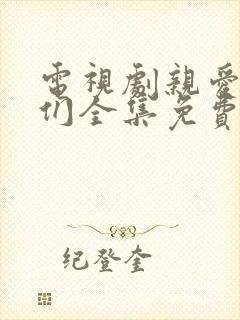 電視劇親愛
们全集免費
纪登奎